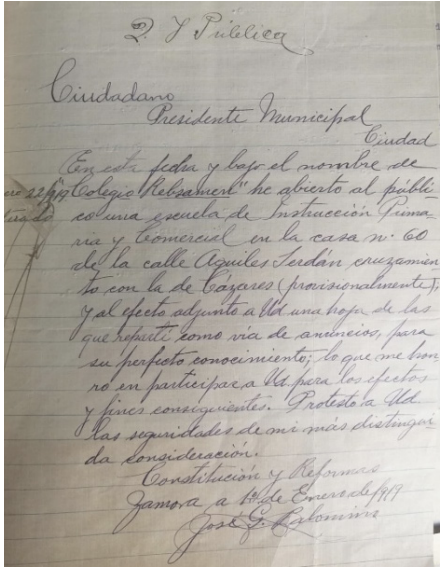 I. Pública
Ciudadano
Presidente Municipal
Ciudad
En esta fecha y bajo el nombre de
"Colegio Rebsamen" he abierto al públi-
co una escuela de Instrucción Prima
ria y Comercial en la casa nº 60
de la calle Aquiles Serdán cruzamien
to con la de Cázares (provisionalmente),
y al efecto adjunto a Ud una hoja de las
que repartí como vía de anuncios, para
su perfecto conocimiento; lo que me hon
ro en participar a Ud. para los efectos
y fines consiguientes. Protesto a Ud
las seguridades de mi más distingui
da consideración.
Constitución y Reformas
Zamora a 1º de Enero de 1917
José G. Palomino